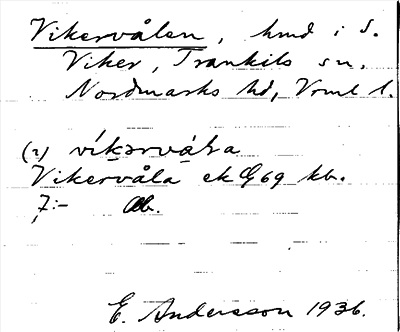 Vikervålen, hmd i S.
Viker, Trankils sn.
Nordmarks hd, Vrml l.
(2) víkərvåla
Vikervåla ek G 69 kb.
7:- Ob.
E. Andersson 1936.